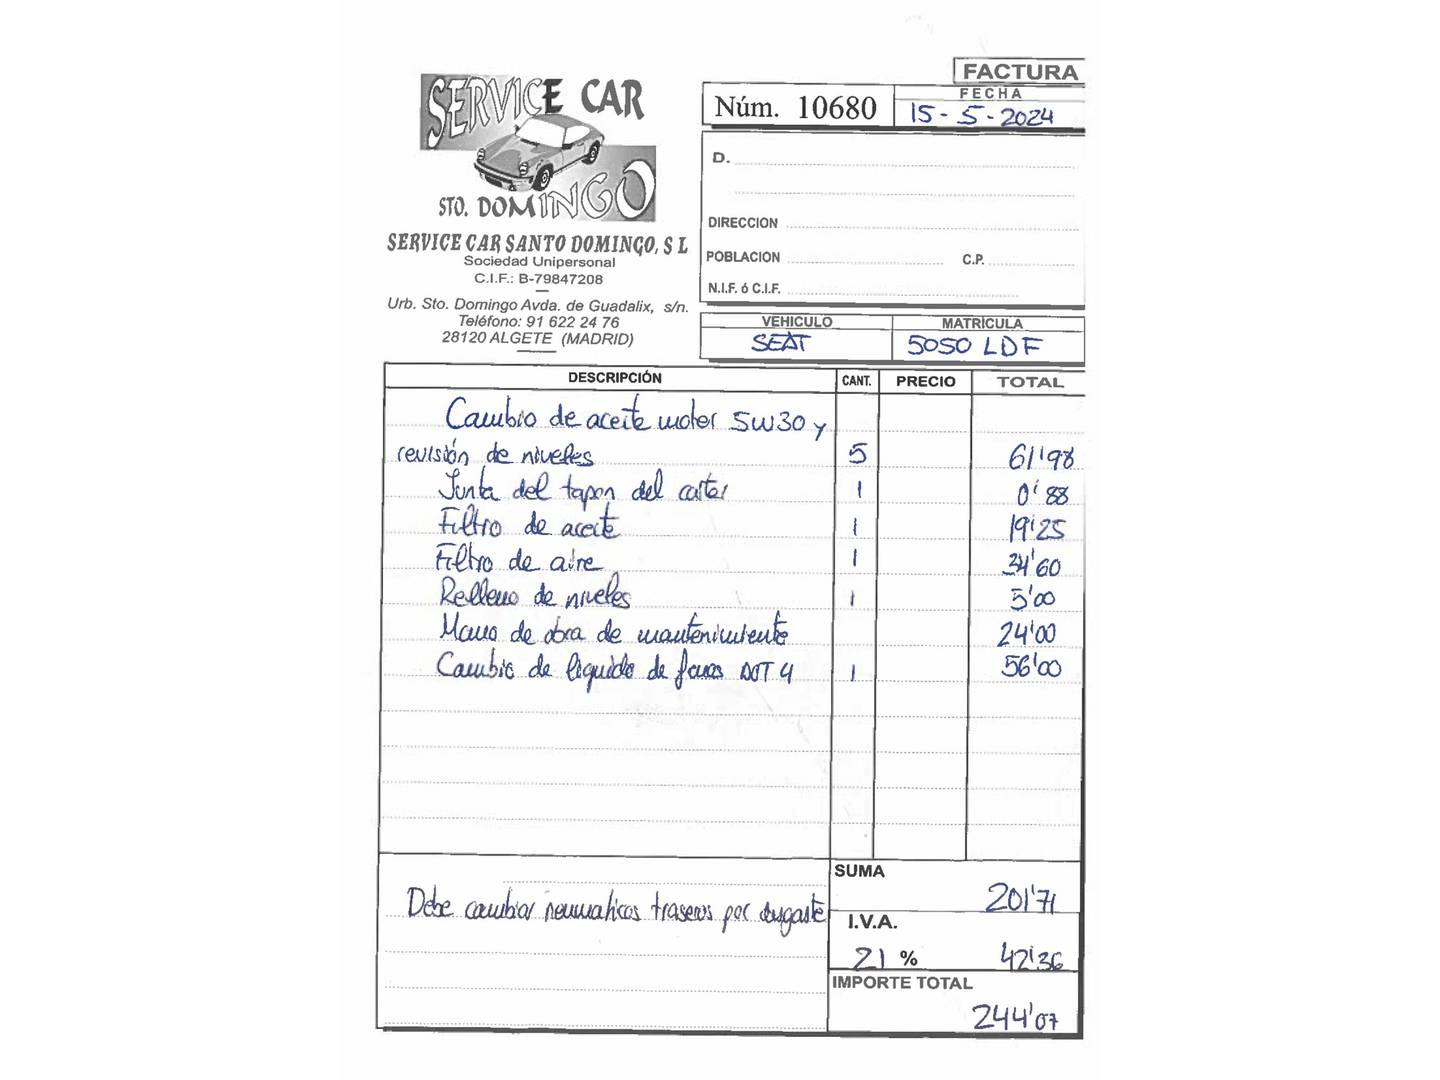 SERVICE CAR
STO. DOMINGO
SERVICE CAR SANTO DOMINGO, S L
Sociedad Unipersonal
C.I.F.: B-79847208
Urb. Sto. Domingo Avda. de Guadalix, s/n.
Teléfono: 91 622 24 76
28120 ALGETE (MADRID)
FACTURA
Núm. 10680
FECHA
15-5-2024
D.
DIRECCION
POBLACION C.P.
N.I.F. ó C.I.F.
VEHICULO MATRÍCULA
SEAT 5050 LDF
DESCRIPCIÓN CANT. PRECIO TOTAL
Cambio de aceite motor 5W30 y
revisión de niveles 5 61'98
Junta del tapon del carter 1 0'88
Filtro de aceite 1 19'25
Filtro de aire 1 34'60
Relleno de niveles 1 5'00
Mano de obra de mantenimiente 24'00
Cambio de liquido de frenos DOT 4 1 56'00
SUMA
201'71
Debe cambiar neumaticos traseros por desgaste
I.V.A.
21 % 42'36
IMPORTE TOTAL
244'07